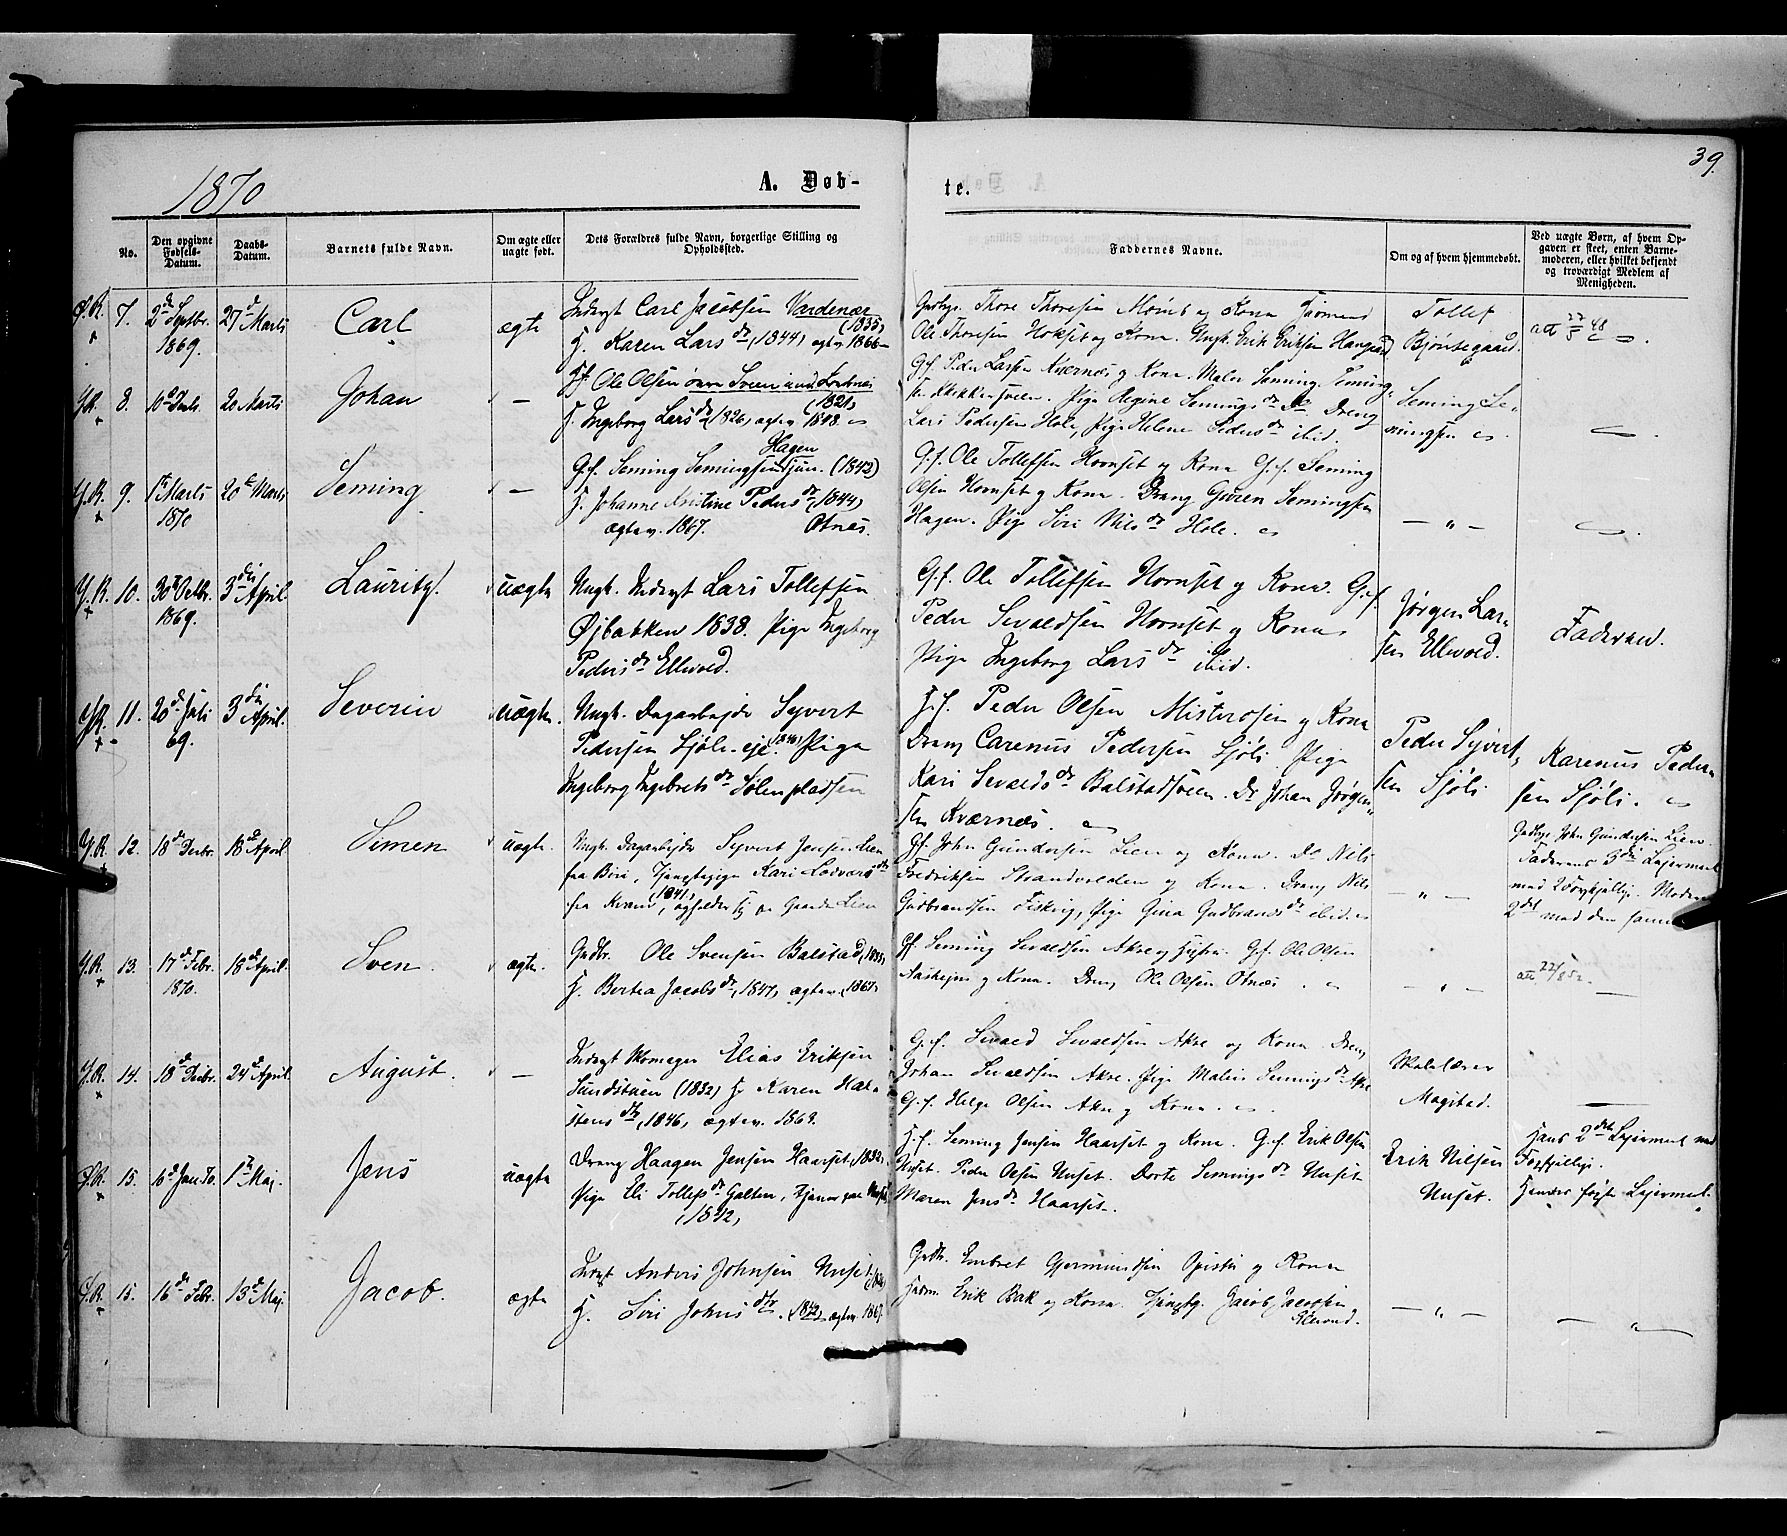 39.
1870
A. Døb-
te.
No.
Den opgivne
Fødsels-
Datum.
Daabs-
Datum.
Barnets fulde Navn.
Om ægte eller
uægte født.
Dets Forældres fulde Navn, borgerlige Stilling og
Opholdssted.
Faddernes Navne.
Om og af hvem hjemmedøbt.
Ved uægte Børn, af hvem Op-
gaven er skeet, enten Barne-
moderen, eller hvilket bekjendt
og troværdigt Medlem af
Menigheden.
7.
2den Septbr.
1869.
27d Marts
Carl
ægte
Inderst Carl Jacobsen Vardenær
(1835)
H. Karen Larsdtr (1844) ægtev. 1866
Thore Thoresen og Kona
Ole Thoresen Hokset og Kona. Ungk. Erik Eriksen
Tollef
Bjøntegaard.
att 27/5 48
Y.R. 8.
20 Marts
Johan
–
Gf. Ole Olsen
(1821)
H. Ingeborg Larsdtr (1826) ægtev. 1848.
G.f. Peder Larsen Kværnes og Kona. Maler Semming
Pige Regine Semmingsdtr Dreng
Lars Pedersen Hole, Pige Helene Pedersdtr ibid.
Seming Se-
mingsen
Y.R. 9.
1ste Marts
1870
20d Marts
Seming
–
Hagen
G.f. Seming Semingsen jun. (1842)
H. Johanne Kristine Pedersdtr (1844)
ægtev. 1867. Otnes.
G.f. Ole Tollefsen Hornset og Kona G.f. Seming
Olsen Hornset og Kona. Dreng Semingsen
Hagen. Pige Siri Nilsdtr Hole.
– " –
Y.R. 10.
30te Octbr.
1869.
3die April
Lauritz.
uægte
Ungk. Inderst Lars Tollefsen
Øjbakken 1838. Pige Ingeborg
Pedersdtr Ellevold.
G.f. Ole Tollefsen Hornset og Kona. G.f.
Peder Sevaldsen Hornset og Kona
Pige Ingeborg Larsdtr ibid.
Jørgen Lar-
sen Ellevold.
Faderen.
Y.R. 11.
20de Juli
69.
3die April.
Severin
uægte.
Ungk. Dagarbejder Syvert
Pedersen Sjøli eje. (1846) Pige
Ingeborg Ingebretsdtr Sølenpladsen
G.f. Peder Olsen Misterosen og Kona
Dreng Carenus Pedersen Sjøli. Pige
Kari Sevaldsdtr Balstadsveen. Dr. Johan Jørgen-
sen Kværnes.
Peder Syvert-
sen Sjøli
Karenus Peder-
sen Sjøli.
Y.R. 12.
18de Decbr.
18d April
Simen
uægte.
Ungk. Dagarbejder Syvert Jensen Lien
fra Biri, Tjenestepige Kari Lodvarsdtr
fra Kvam (1841), opholder sig paa Gaarden Lien
Gf. John Gundersen Lien og Kona. Do Nils
Fredriksen Strandvolden og Kona. Dreng Nils
Gudbrandsen Fiskvig, Pige Gina Gudbrandsdtr ibid.
– " –
Gaardbr. John Gundersen Lien.
Faderens 3die Lejermaal
med 2 Forskjellige. Moderens
2det med den samme
Y.R. 13.
17de Febr.
1870.
18d April.
Sven.
ægte.
Grdbr. Ole Svensen Balstad (1835)
H. Bertea Jacobsdtr (1847) ægtev. (1867)
Gf. Seming Sevaldsen Akre og Hustru. G.f. Ole Olsen
og Kona. Dreng Ole Olsen Otnes
– " –
att. 22/8 52.
Y.R. 14.
18de Decbr.
24d April.
August.
–
Inderst Skomager Elias Eriksen
Sundstuen (1832) H. Karen Hal-
stensdtr (1846) ægtev. 1869.
G.f. Sevald Sevaldsen Akre og Kona. Dreng
Johan Sevaldsen Akre. Pige Malin Semingsdtr Akre
G.f. Helge Olsen Akre og Kona.
Skolelærer
Magstad.
Y.R. 15.
16d Jan. 70.
1ste Maj.
Jens
uægte
Dreng Haagen Jensen Haarset (1832)
Pige Eli Tollefsdtr Galten, tjener paa Nuset
(1842)
G.f. Seming Jensen Haarset og Kona. G.f. Erik Olsen
Nuset. Peder Olsen Nuset. Dorte Semingsdtr Nuset
Maren Jensdtr Haarset.
Erik Nilsen
Nuset.
Hans 2det Lejermaal med
Forskjellige.
Hendes første Lejermaal.
Y.R. 15.
16de Febr.
13d Maj.
Jacob.
ægte
Inderst Anders Johnsen Nuset
H. Siri Johnsdtr (1842) ægtev. 186
Grdbr. Embret Gjermundsen Opistu og Kona
Husm. Erik Bak og Kona. Jacob Jacobsen
– " –
– " –